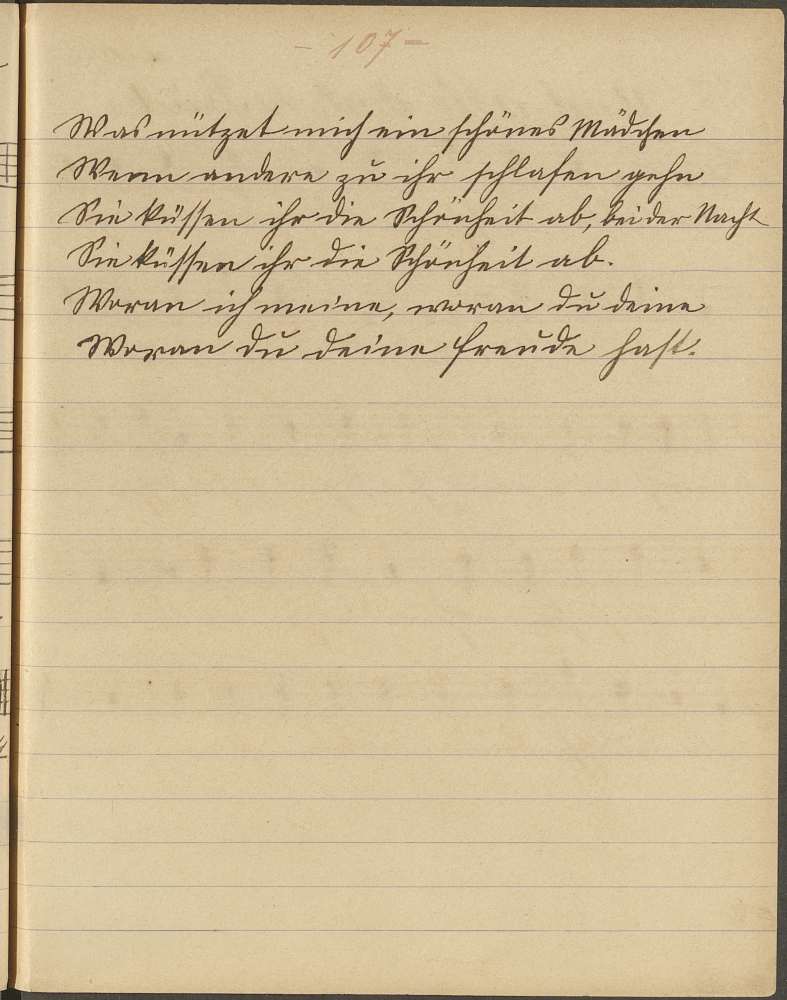 - 107 -
Was nützet mich ein schönes Mädchen
Wenn andere zu ihr schlafen gehn
Sie küssen ihr die Schönheit ab, bei der Nacht
Sie küssen ihr die Schönheit ab.
Woran ich meine, woran du deine
Woran du deine Freude hast.